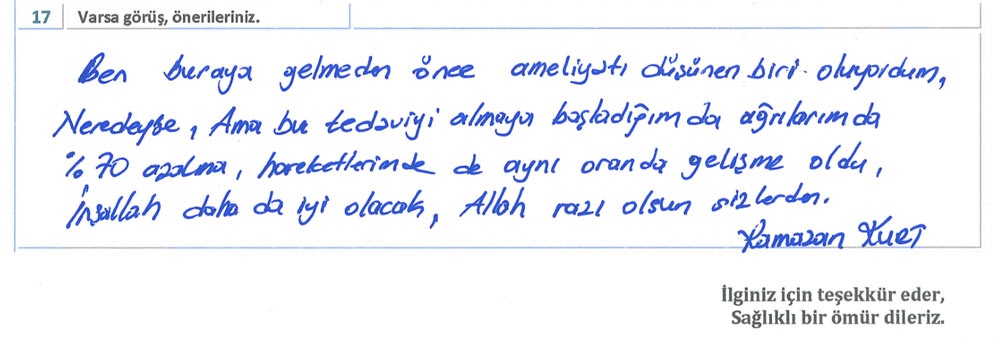 17 Varsa görüş, önerileriniz.
Ben buraya gelmeden önce ameliyatı düşünen biri oluyordum,
Neredeyse, Ama bu tedaviyi almaya başladığımda ağrılarımda
%70 azalma, hareketlerimde de aynı oranda gelişme oldu,
İnşallah daha da iyi olacak, Allah razı olsun sizlerden.
Ramazan KURT
İlginiz için teşekkür eder,
Sağlıklı bir ömür dileriz.